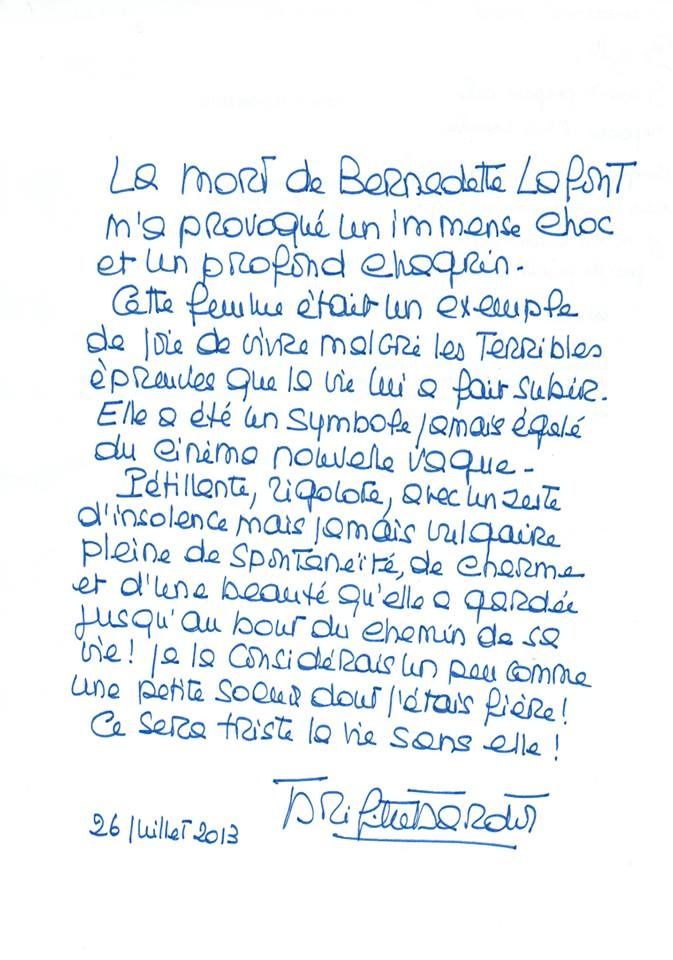 La mort de Bernadette Lafont
m'a provoqué un immense choc
et un profond chagrin.
Cette femme était un exemple
de joie de vivre malgré les terribles
épreuves que la vie lui a fait subir.
Elle a été un symbole jamais égalé
du cinéma nouvelle vague.
Pétillante, rigolote, avec un zeste
d'insolence mais jamais vulgaire
pleine de spontaneïté, de charme
et d'une beauté qu'elle a gardée
jusqu'au bout du chemin de sa
vie! Je la considérais un peu comme
une petite soeur dont j'étais fière!
Ce sera triste la vie sans elle!
Brigitte Bardot
26 juillet 2013